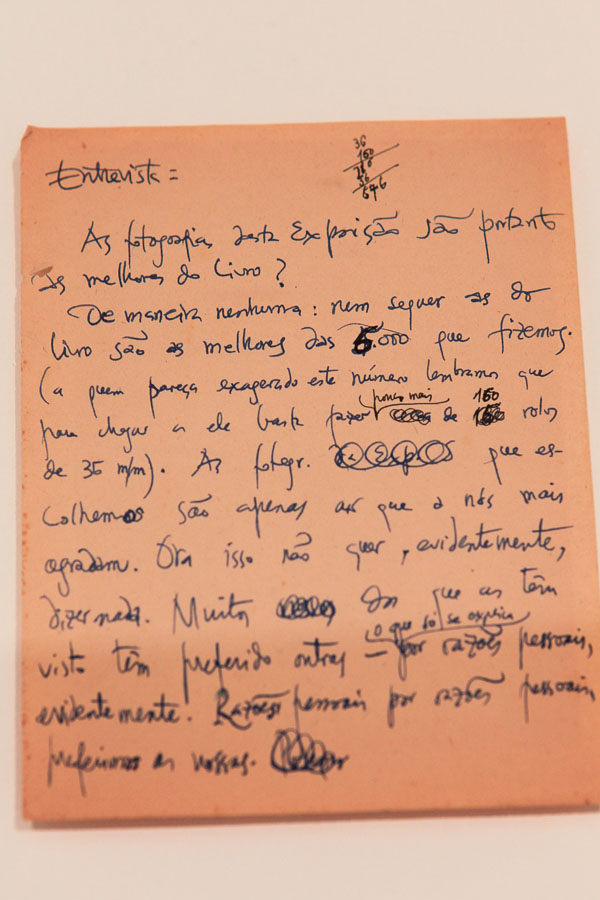 Entrevista =
36
150
Às fotografias desta Exposição são portanto
as melhores do livro?
De maneira nenhuma: nem sequer as do
livro são as melhores das 6.000 que fizemos.
(a quem pareça exagerado este número lembramos que
pouco mais 150
para chegar a ele basta fazer de rolos
de 35 m/m). As fotogr. que es-
colhemos são apenas as que a nós mais
agradam. Ora isso não quer, evidentemente,
dizer nada. Muitos dos que as têm
o que só se explica
visto têm preferido outras – por razões pessoais,
evidentemente. Razões pessoais por razões pessoais,
preferimos as nossas.